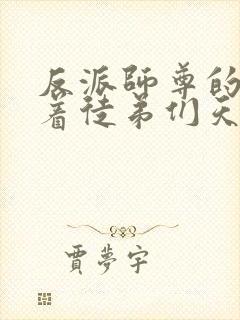 反派師尊的
着徒弟们天
賈夢宇